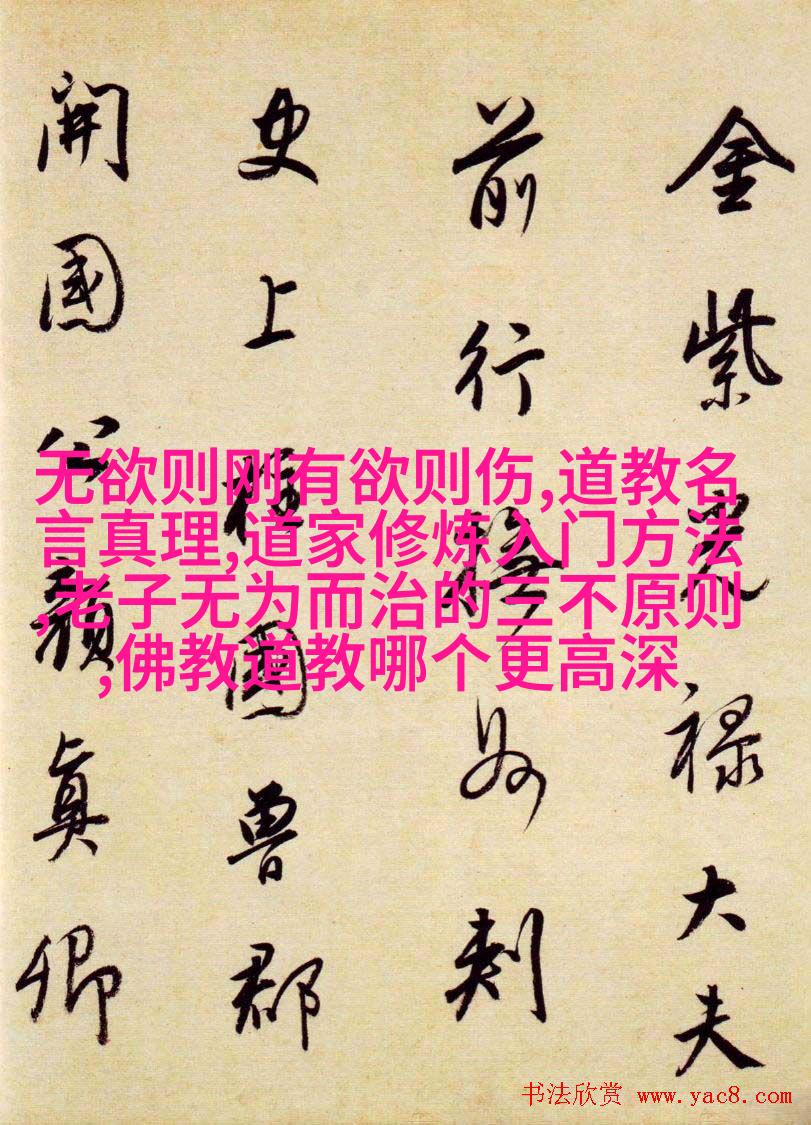 金紫光禄大夫
前行撫州刺
史上柱國魯郡
開國公顏眞卿
无欲则刚有欲则伤,道教名
言真理,道家修炼入门方法
,老子无为而治的三不原则
,佛教道教哪个更高深
书法欣赏 www.yac8.com